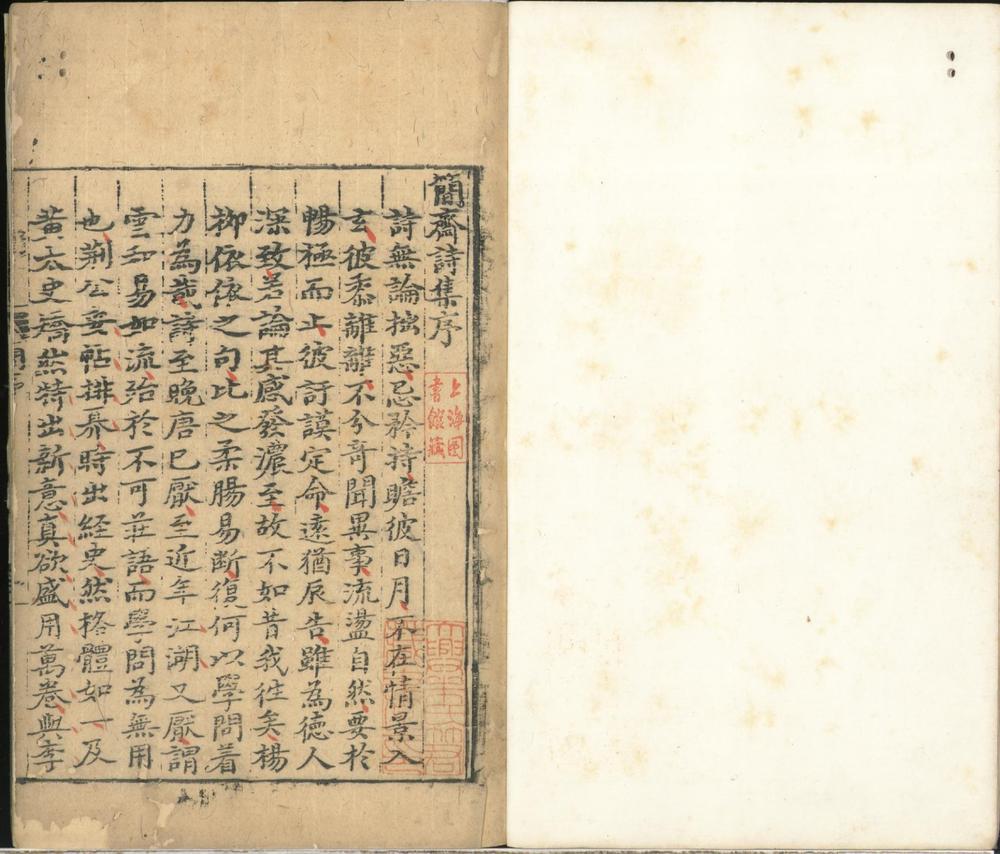 簡齋詩集序
詩無論拙惡忌矜持瞻彼日月不在情景入
玄彼黍離離不分奇聞異事流盪自然要於
暢極而止彼訏謨定命遠猶辰告雖為德人
深致若論其感發濃至故不如昔我徃矣楊
栁依依之句比之柔腸易断復何以學問着
力為㢤詩至晚唐已厭至近年江湖又厭謂
雲和易如流殆於不可莊語而學問為無用
也荆公妥帖排奡時出経史然格體如一及
黃太史矯然特出新意真欲盛用萬卷與李
上海圖
書館藏